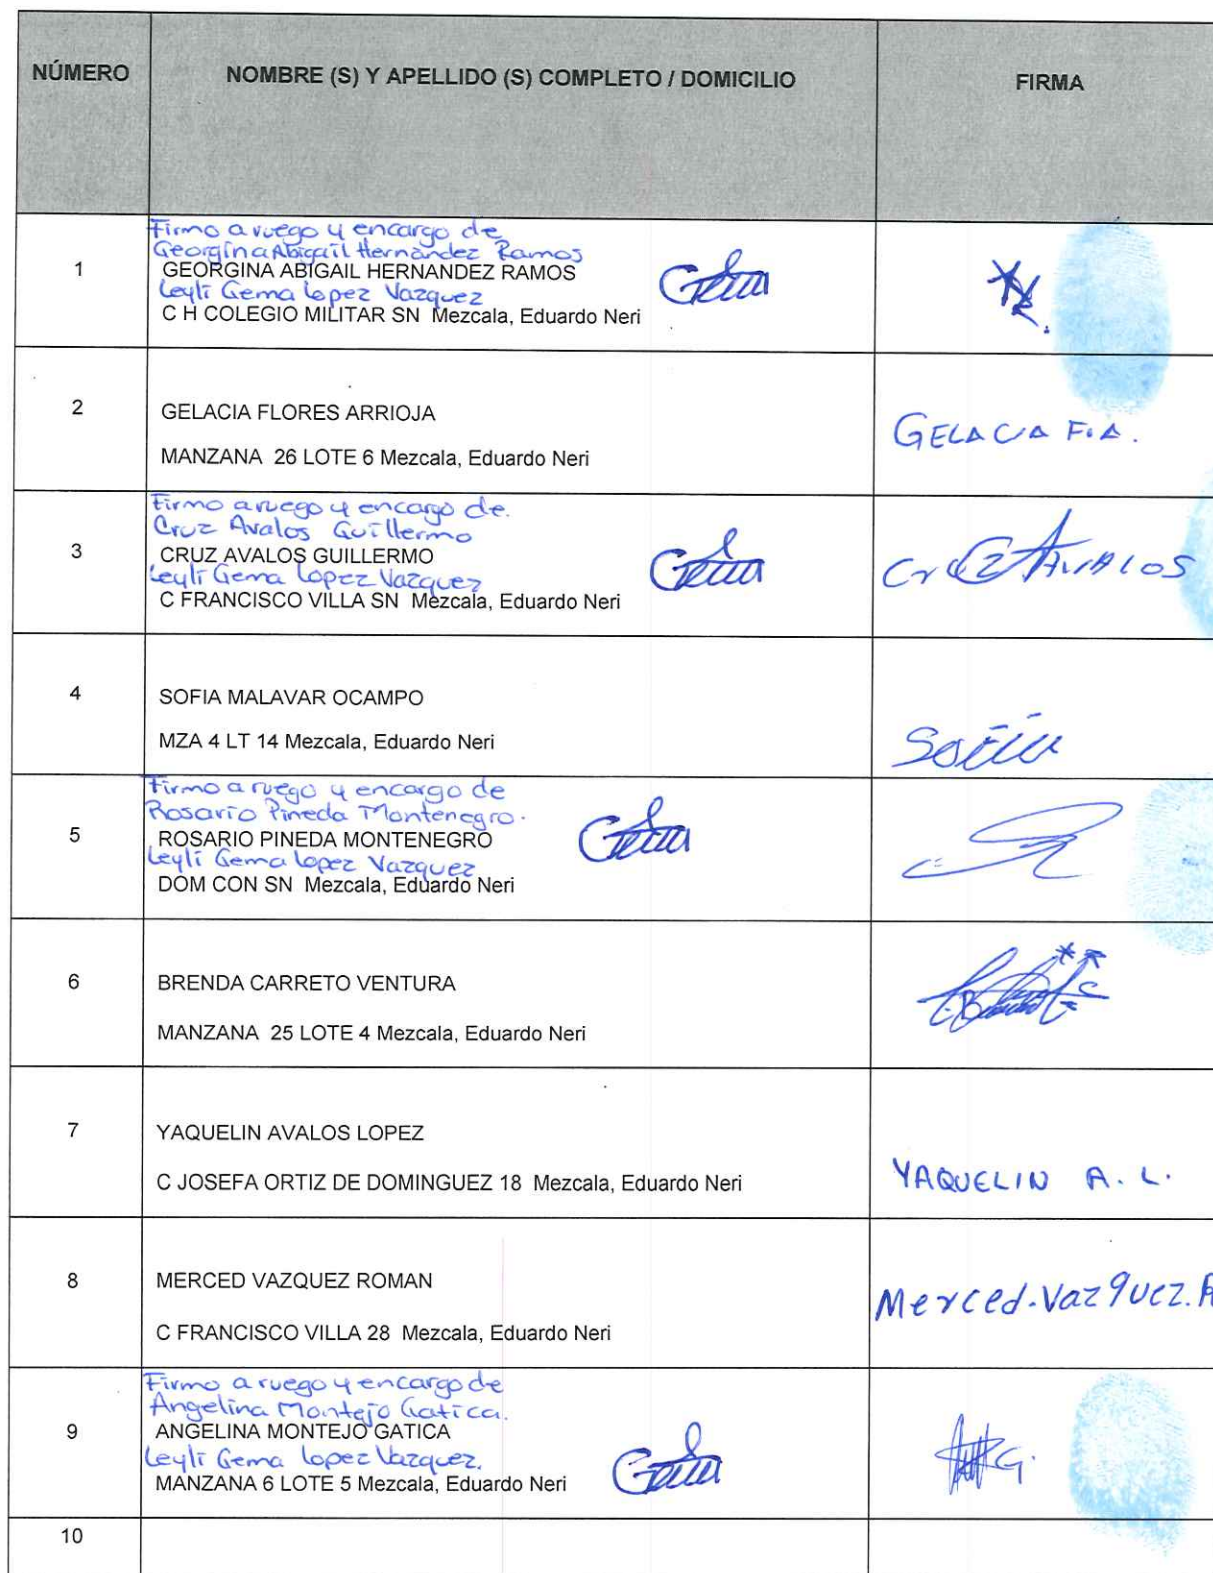 NÚMERO
NOMBRE (S) Y APELLIDO (S) COMPLETO / DOMICILIO
FIRMA
1
Firmo a ruego y encargo de
Georgina Abigail Hernández Ramos
GEORGINA ABIGAIL HERNANDEZ RAMOS
Leyli Gema Lopez Vazquez
C H COLEGIO MILITAR SN Mezcala, Eduardo Neri
Gema
2
GELACIA FLORES ARRIOJA
MANZANA 26 LOTE 6 Mezcala, Eduardo Neri
GELACIA F.A.
3
Firmo a ruego y encargo de.
Cruz Avalos Guillermo
CRUZ AVALOS GUILLERMO
Leyli Gema Lopez Vazquez
C FRANCISCO VILLA SN Mezcala, Eduardo Neri
Gema
Cruz AVALOS
4
SOFIA MALAVAR OCAMPO
MZA 4 LT 14 Mezcala, Eduardo Neri
Sofia
5
Firmo a ruego y encargo de
Rosario Pineda Montenegro.
ROSARIO PINEDA MONTENEGRO
Leyli Gema Lopez Vazquez
DOM CON SN Mezcala, Eduardo Neri
Gema
6
BRENDA CARRETO VENTURA
MANZANA 25 LOTE 4 Mezcala, Eduardo Neri
7
YAQUELIN AVALOS LOPEZ
C JOSEFA ORTIZ DE DOMINGUEZ 18 Mezcala, Eduardo Neri
YAQUELIN A. L.
8
MERCED VAZQUEZ ROMAN
C FRANCISCO VILLA 28 Mezcala, Eduardo Neri
Merced.Vazquez.R
9
Firmo a ruego y encargo de
Angelina Montejo Gatica.
ANGELINA MONTEJO GATICA
Leyli Gema Lopez Vazquez.
MANZANA 6 LOTE 5 Mezcala, Eduardo Neri
Gema
10